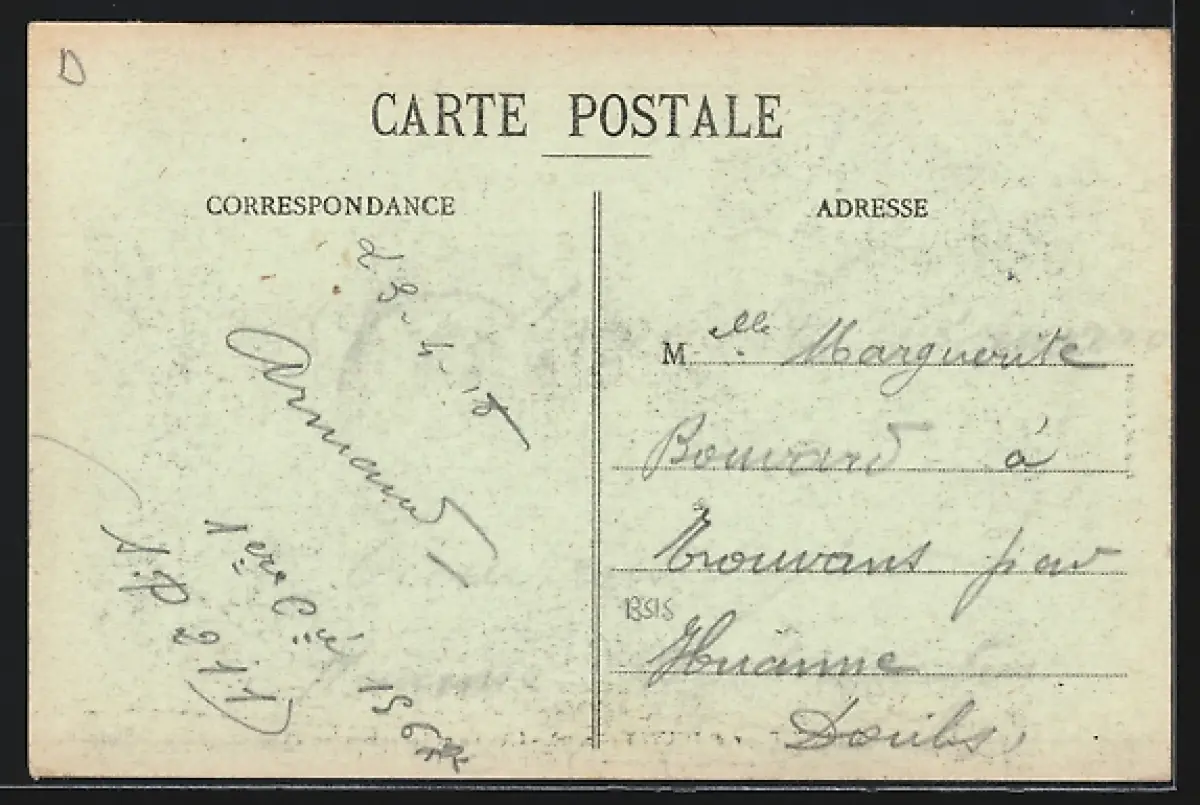 D
CARTE POSTALE
CORRESPONDANCE
23-4-18
Armand
1ère Cie 156
S.P 211
ADRESSE
Melle Marguerite
Bouvard à
Trouvans par
13515
Huanne
Doubs